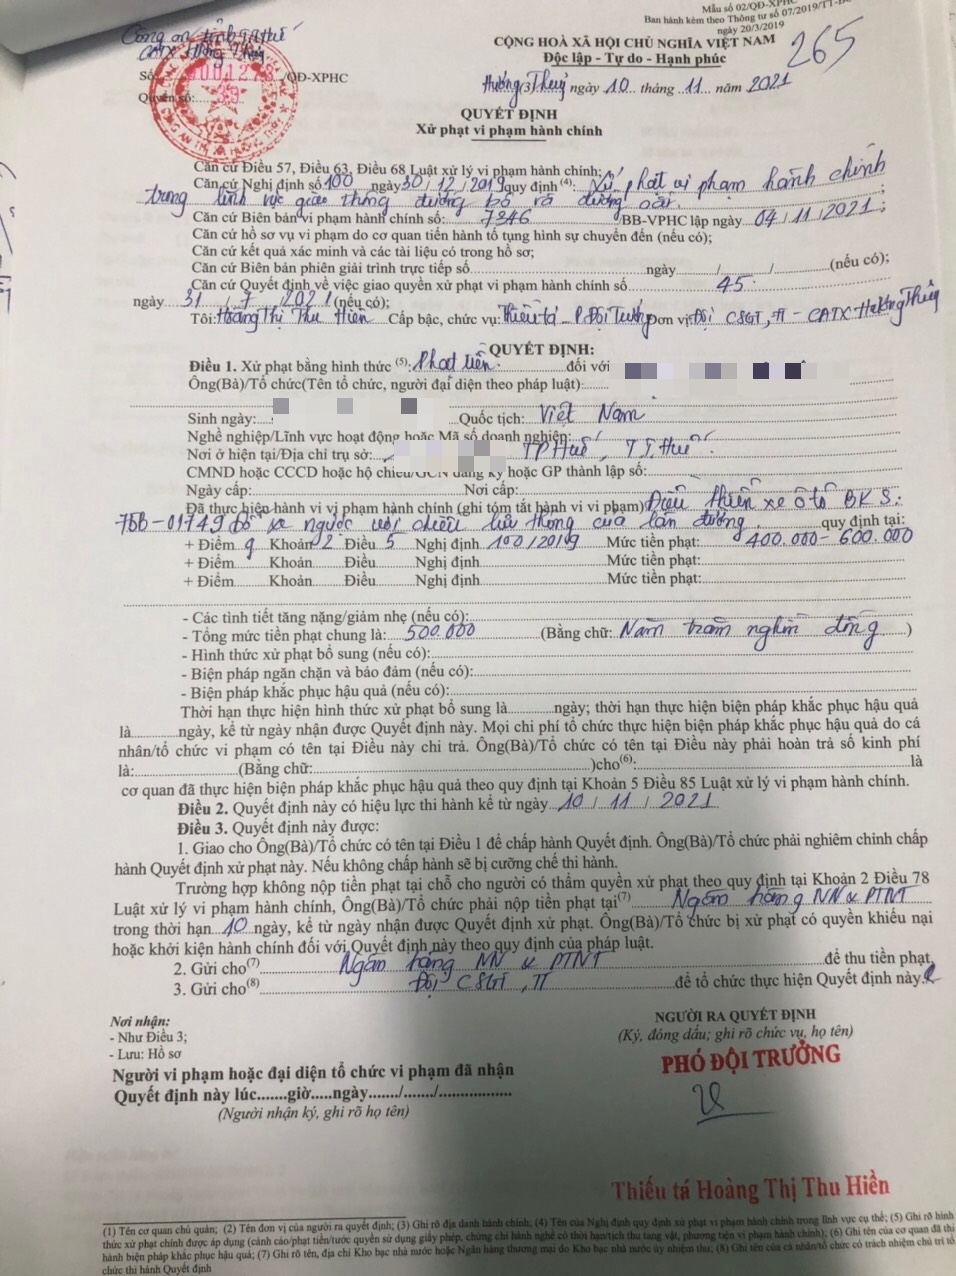 Mẫu số 02/QĐ-XPHC
Ban hành kèm theo Thông tư số 07/2019/TT-
ngày 20/3/2019
Công an tỉnh TT Huế
CATX Hương Thủy
CỘNG HOÀ XÃ HỘI CHỦ NGHĨA VIỆT NAM
265
Độc lập - Tự do - Hạnh phúc
Số /QĐ-XPHC
Quyển số: 39
Hương (3) Thuỷ ngày 10 tháng 11 năm 2021
QUYẾT ĐỊNH
Xử phạt vi phạm hành chính
Căn cứ Điều 57, Điều 63, Điều 68 Luật xử lý vi phạm hành chính;
Căn cứ Nghị định số 100 ngày 30/12/2019 quy định (4): Xử phạt vi phạm hành chính
trong lĩnh vực giao thông đường bộ và đường sắt;
Căn cứ Biên bản vi phạm hành chính số: 7346 /BB-VPHC lập ngày 04/11/2021;
Căn cứ hồ sơ vụ vi phạm do cơ quan tiến hành tố tụng hình sự chuyển đến (nếu có);
Căn cứ kết quả xác minh và các tài liệu có trong hồ sơ;
Căn cứ Biên bản phiên giải trình trực tiếp số.....ngày...../...../.....(nếu có);
Căn cứ Quyết định về việc giao quyền xử phạt vi phạm hành chính số 45
ngày 31/7/2021 (nếu có);
Tôi: Hoàng Thị Thu Hiền Cấp bậc, chức vụ: Thiếu tá - P.Đội Trưởng Đơn vị: Đội CSGT, TT - CATX Hương Thủy
QUYẾT ĐỊNH:
Điều 1. Xử phạt bằng hình thức (5): Phạt tiền. đối với
Ông(Bà)/Tổ chức(Tên tổ chức, người đại diện theo pháp luật):
Sinh ngày: Quốc tịch: Việt Nam
Nghề nghiệp/Lĩnh vực hoạt động hoặc Mã số doanh nghiệp:
Nơi ở hiện tại/Địa chỉ trụ sở: TP Huế, TT. Huế.
CMND hoặc CCCD hoặc hộ chiếu/GCN đăng ký hoặc GP thành lập số:
Ngày cấp: Nơi cấp:
Đã thực hiện hành vi vi phạm hành chính (ghi tóm tắt hành vi vi phạm) Điều khiển xe ô tô BKS:
75B-01749 đỗ xe ngược với chiều lưu thông của làn đường. quy định tại:
+ Điểm g Khoản 2 Điều 5 Nghị định 100/2019 Mức tiền phạt: 400.000-600.000
+ Điểm Khoản Điều Nghị định Mức tiền phạt:
+ Điểm Khoản Điều Nghị định Mức tiền phạt:
- Các tình tiết tăng nặng/giảm nhẹ (nếu có):
- Tổng mức tiền phạt chung là: 500.000 (Bằng chữ: Năm trăm nghìn đồng)
- Hình thức xử phạt bổ sung (nếu có):
- Biện pháp ngăn chặn và bảo đảm (nếu có):
- Biện pháp khắc phục hậu quả (nếu có):
Thời hạn thực hiện hình thức xử phạt bổ sung là.....ngày; thời hạn thực hiện biện pháp khắc phục hậu quả
là.....ngày, kể từ ngày nhận được Quyết định này. Mọi chi phí tổ chức thực hiện biện pháp khắc phục hậu quả do cá
nhân/tổ chức vi phạm có tên tại Điều này chi trả. Ông(Bà)/Tổ chức có tên tại Điều này phải hoàn trả số kinh phí
là:.....(Bằng chữ:.....)cho(6):.....là
cơ quan đã thực hiện biện pháp khắc phục hậu quả theo quy định tại Khoản 5 Điều 85 Luật xử lý vi phạm hành chính.
Điều 2. Quyết định này có hiệu lực thi hành kể từ ngày 10/11/2021
Điều 3. Quyết định này được:
1. Giao cho Ông(Bà)/Tổ chức có tên tại Điều 1 để chấp hành Quyết định. Ông(Bà)/Tổ chức phải nghiêm chỉnh chấp
hành Quyết định xử phạt này. Nếu không chấp hành sẽ bị cưỡng chế thi hành.
Trường hợp không nộp tiền phạt tại chỗ cho người có thẩm quyền xử phạt theo quy định tại Khoản 2 Điều 78
Luật xử lý vi phạm hành chính, Ông(Bà)/Tổ chức phải nộp tiền phạt tại(7) Ngân hàng NN & PTNT
trong thời hạn 10 ngày, kể từ ngày nhận được Quyết định xử phạt. Ông(Bà)/Tổ chức bị xử phạt có quyền khiếu nại
hoặc khởi kiện hành chính đối với Quyết định này theo quy định của pháp luật.
2. Gửi cho(7) Ngân hàng NN & PTNT để thu tiền phạt,
3. Gửi cho(8) Đội CSGT, TT để tổ chức thực hiện Quyết định này.
Nơi nhận:
- Như Điều 3;
- Lưu: Hồ sơ
NGƯỜI RA QUYẾT ĐỊNH
(Ký, đóng dấu; ghi rõ chức vụ, họ tên)
PHÓ ĐỘI TRƯỞNG
Người vi phạm hoặc đại diện tổ chức vi phạm đã nhận
Quyết định này lúc.......giờ.....ngày......./......./.......
(Người nhận ký, ghi rõ họ tên)
Thiếu tá Hoàng Thị Thu Hiền
(1) Tên cơ quan chủ quản; (2) Tên đơn vị của người ra quyết định; (3) Ghi rõ địa danh hành chính; (4) Tên của Nghị định quy định xử phạt vi phạm hành chính trong lĩnh vực cụ thể; (5) Ghi rõ hình
thức xử phạt chính được áp dụng (cảnh cáo/phạt tiền/tước quyền sử dụng giấy phép, chứng chỉ hành nghề có thời hạn/tịch thu tang vật, phương tiện vi phạm hành chính); (6) Ghi tên của cơ quan đã thi
hành biện pháp khắc phục hậu quả; (7) Ghi rõ tên, địa chỉ Kho bạc nhà nước hoặc Ngân hàng thương mại do Kho bạc nhà nước ủy nhiệm thu; (8) Ghi tên của cá nhân/tổ chức có trách nhiệm chủ trì tổ
chức thi hành Quyết định